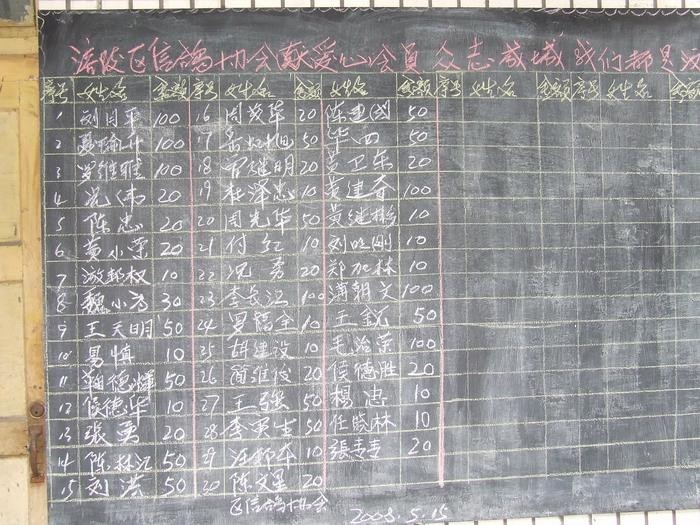 涪陵区信鸽协会献爱心会员 众志成城 我们都是汶
序号 姓名 金额 序号 姓名 金额 姓名 金额 序号 姓名 金额 序号 姓名 金额
1 刘月平 100 16 周茂华 20 陈建国 50
2 100 17 50 华四 50
3 罗维雅 100 18 曾继明 20 黄卫东 20
4 沈伟 20 19 杜泽忠 10 黄建香 100
5 陈忠 20 20 周光华 50 黄继鹏 10
6 黄小荣 20 21 付红 10 刘明刚 10
7 游邦权 10 22 沈勇 20 郑加林 10
8 魏小芳 30 23 李长江 100 蒲朝文 100
9 王天明 50 24 罗福全 10 王锐 50
10 易慎 10 25 胡建设 10 毛治荣 100
11 德辉 50 26 简维俊 20 侯德胜 20
12 侯德华 10 27 王强 50 杨忠 10
13 张勇 20 28 李英生 50 任晓林 10
14 陈林江 50 29 10 張寿 20
15 刘洪 50 30 陈文星 20
区信鸽协会
2008.5.15